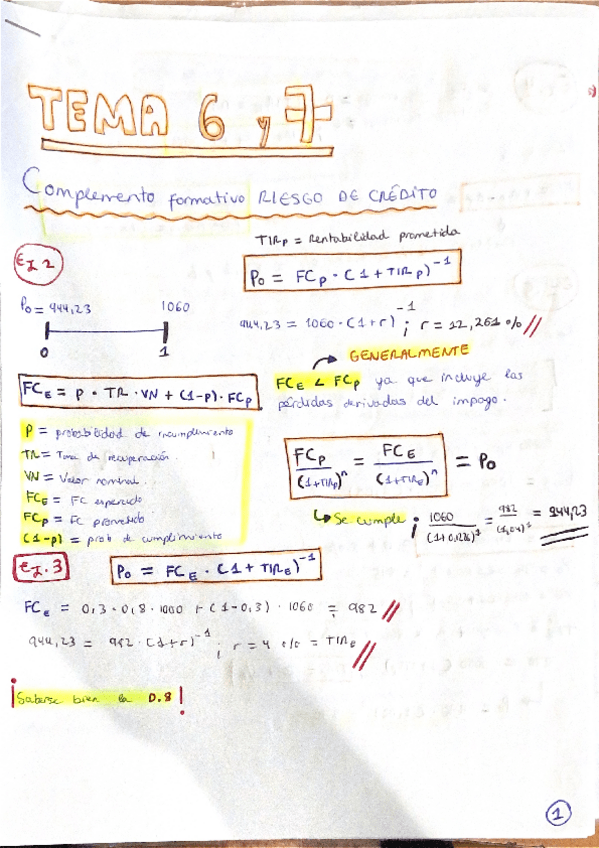 TEMA 6 y 7
Complemento formativo RIESGO DE CRÉDITO
TIRp = Rentabilidad prometida
EJ 2
P₀ = FCp · (1 + TIRp)⁻¹
P₀ = 944,23 1060
0 1
944,23 = 1060 · (1+r)⁻¹ ; r = 12,261 % //
GENERALMENTE
FCE < FCp ya que incluye las
pérdidas derivadas del impago.
FCE = P · TR · VN + (1-P) · FCp
P = probabilidad de incumplimiento
TR = Tasa de recuperación.
VN = Valor nominal.
FCE = FC esperado
FCp = FC prometido
(1-p) = prob de cumplimiento
FCp/(1+TIRp)ⁿ = FCE/(1+TIRE)ⁿ = P₀
Se cumple ; 1060/(1+0,1226)¹ = 982/(1,04)¹ = 944,23
EJ. 3
P₀ = FCE · (1 + TIRE)⁻¹
FCE = 0,3 · 0,8 · 1000 + (1-0,3) · 1060 = 982 //
944,23 = 982 · (1+r)⁻¹ ; r = 4 % = TIRE //
¡Saberse bien la D.8!
1